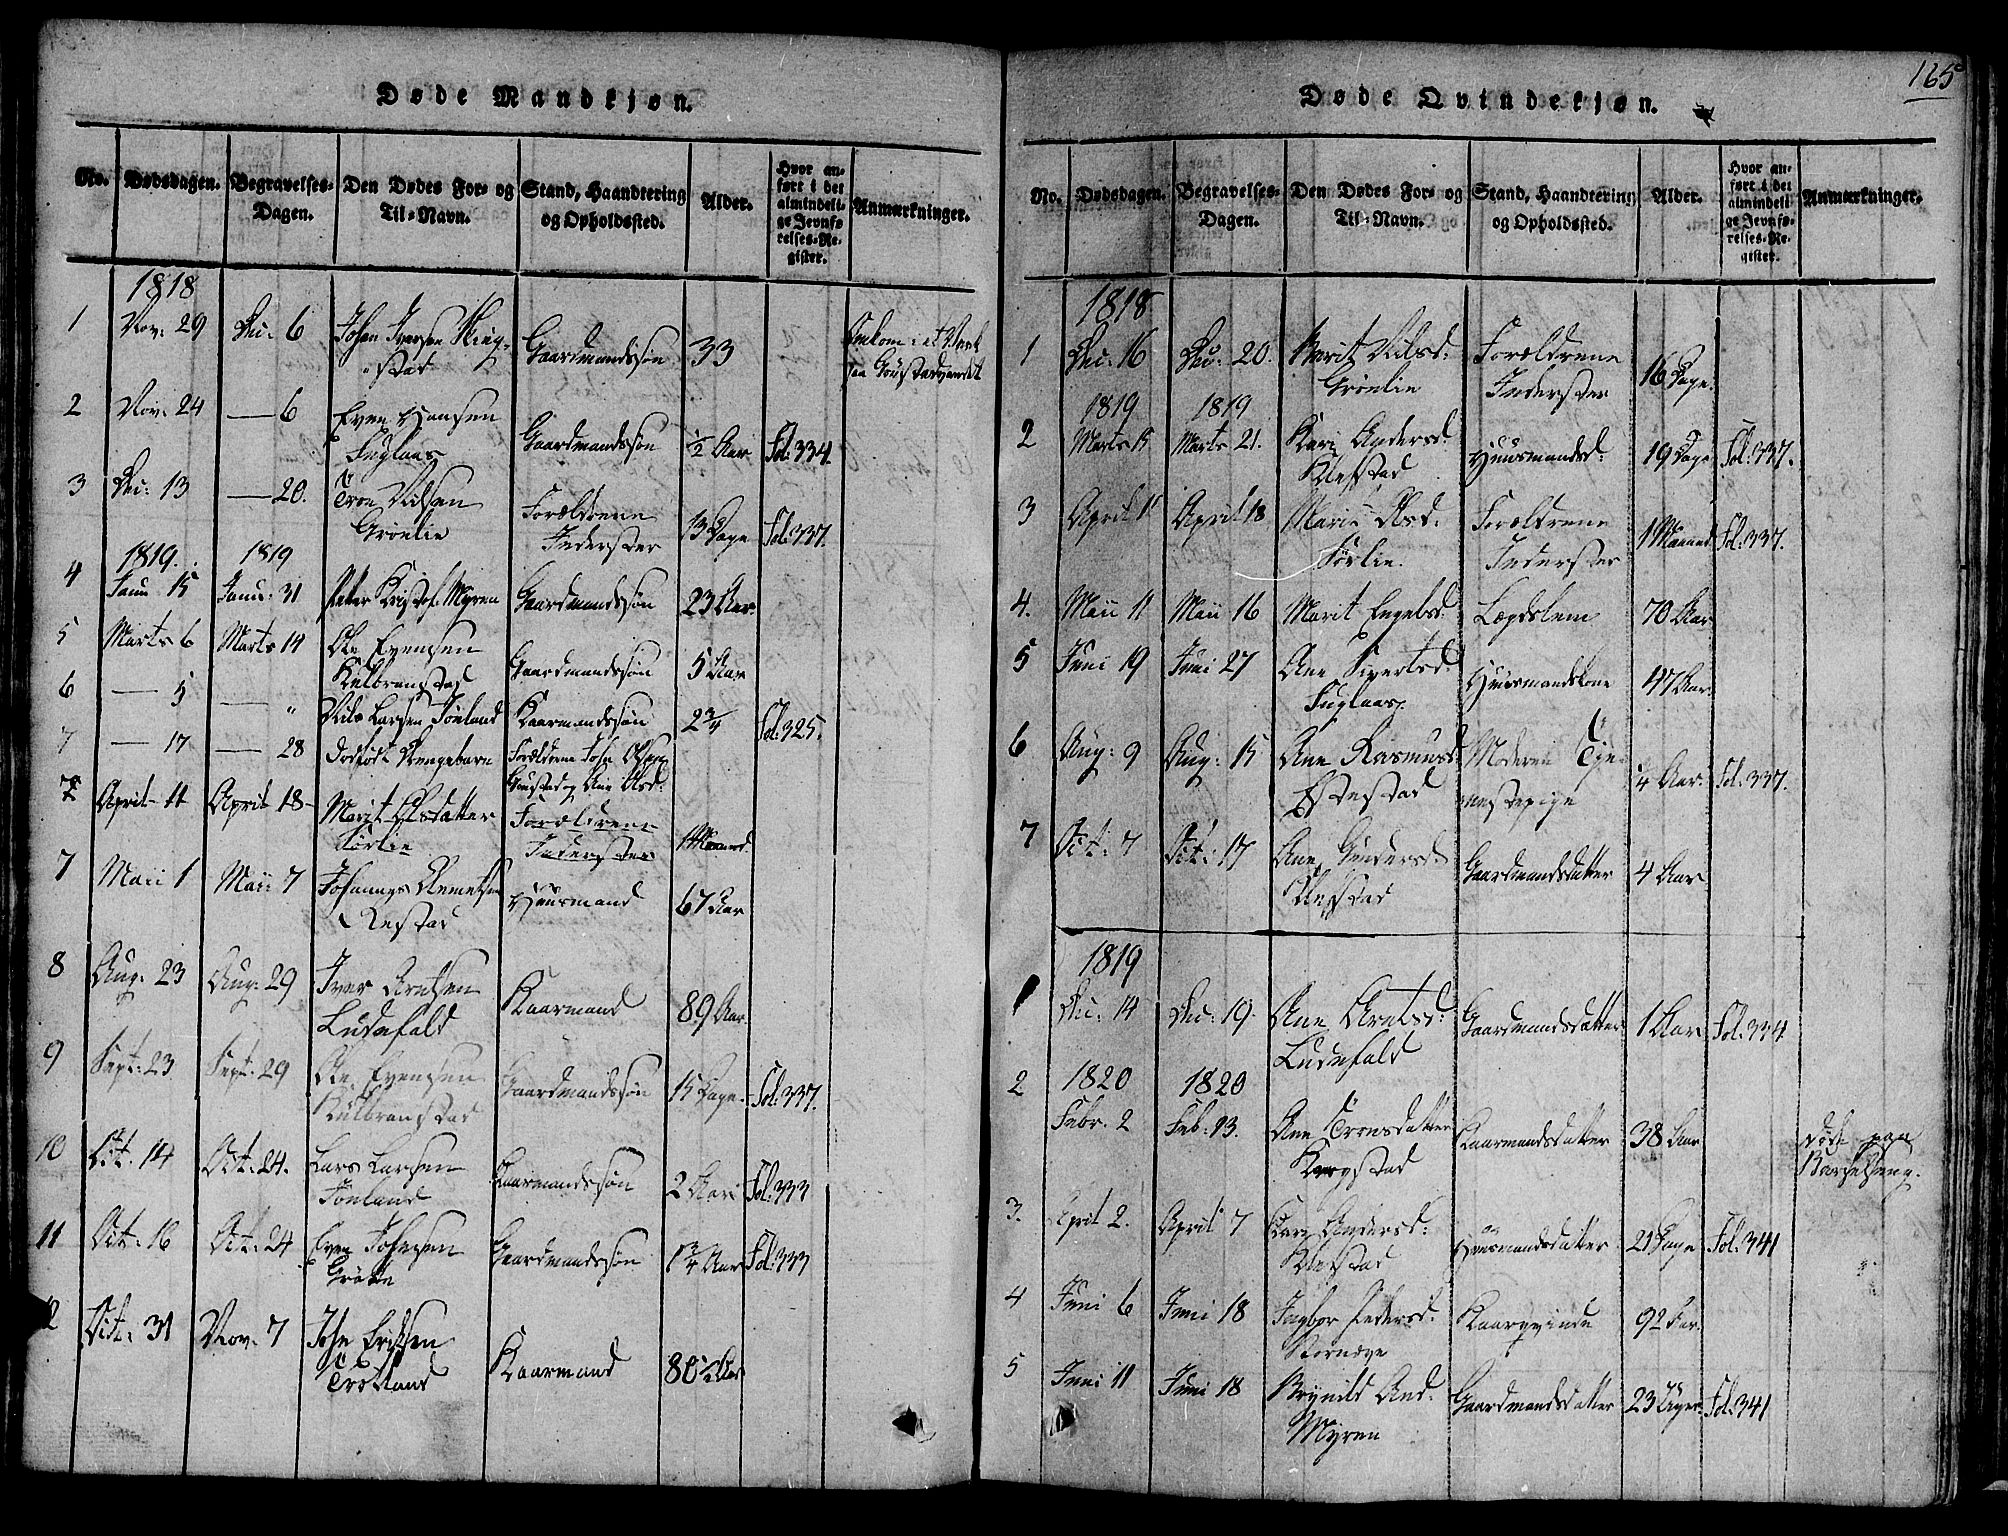 165
Døde Mandkjøn.
No. Dødsdagen. Begravelses-Dagen. Den Dødes For- og Til-Navn. Stand, Haandtering og Opholdssted. Alder. Hvor anført i det almindelige Jevnførelses-Register. Anmærkninger.
1818
1 Nov: 29 Dec: 6 Johan Iversen
stad Gaardmandssøn 33 Omkom i et
paa
2 Nov. 24 — 6 Even Hansen
Fuglaas Gaardmandssøn ½ Aar Fol: 334.
3 Dec: 13 — 20. Tron Nilsen
Grønlie Forældrene
Inderster 13 Dage Fol: 337.
1819. 1819
4 Janu 15 Janu: 31 Peter Kristof. Myren Gaardmandssøn 23 Aar
5 Marts 6 Marts 14 Ole Evensen
Kulbranstad Gaardmandssøn 5 Aar
6 — 5 — " Nils Larsen Jonland Kaarmandssøn 2¾ Fol: 325.
7 — 17 — 28 dødfødt Drengebarn Forældrene John Olsen
og Ane Olsd:
April 11 April 18 Marit Olsdatter
Sørlie Forældrene
Inderster 1 Maaned
7 Maii 1 Maii 7 Johannes Clemetsen
Klefstad Huusmand 67 Aar
8 Aug: 23 Aug: 29 Iver Arntsen
Ludefald Kaarmand 89 Aar
9 Sept: 23 Sept: 29 Ole Evensen
Kulbranstad Gaardmandssøn 15 Dage Fol: 337.
10 Oct. 14 Oct. 24. Lars Larsen
Jonland Kaarmandssøn 2 Aar Fol: 333
11 Oct: 16 Oct: 24 Even Johnsen
Grøtte Gaardmandssøn 1¾ Aar Fol: 333
12 Oct: 31 Nov. 7 John Ericksen
Kaarmand 80 Aar
Døde Qvindekjøn.
No. Dødsdagen. Begravelses-Dagen. Den Dødes For- og Til-Navn. Stand, Haandtering og Opholdssted. Alder. Hvor anført i det almindelige Jevnførelses-Register. Anmærkninger.
1818
1 Dec: 16 Dec: 20. Marit Nilsd:
Grønlie Forældrene
Inderster 16 Dage.
1819 1819
2 Marts 15 Marts 21. Kari Andersd:
Klefstad Huusmandsd: 19 Dage Fol: 337.
3 April 11 April 18 Marit Olsd:
Sørlie. Forældrene
Inderster 1 Maaned Fol: 337.
4. Maii 11 Maii 16 Marit Engebsd: Lægdslem 70 Aar
5 Juni 19 Juni 27 Ane Sivertsd:
Fuglaas. Huusmandskone 47 Aar
6 Aug: 9 Aug: 15 Ane Rasmusd:
Moderen Tje-
nestepige ¼ Aar. Fol: 337.
7 Oct: 7 Oct: 17 Ane Gundersd:
Klefstad Gaardmandsdatter 4 Aar
1819
1 Dec: 14 Dec: 19. Ane Arntsd:
Ludefald Gaardmandsdatter 1 Aar Fol: 334
1820 1820
2 Febr. 2 Feb: 13. Ane Tronsdatter
Kaarmandsdatter 38 Aar døde paa
Barselseng.
3. April 2. April 7 Kari Andersd:
Klefstad Huusmandsdatter 21 Dage Fol: 341
4 Juni 6 Juni 18 Ingbor Pedersd:
Kaarqvinde 92 Aar.
5 Juni 11 Juni 18 Brynild And:
Myren Gaardmandsdatter 23 Uger. Fol: 341